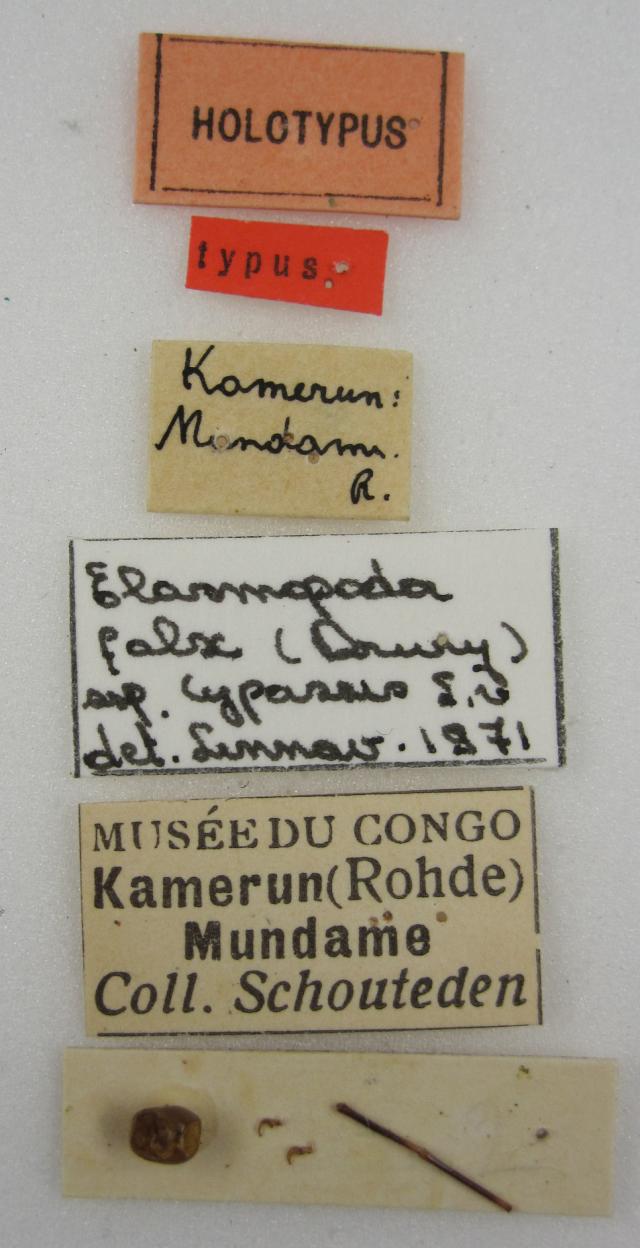 HOLOTYPUS
typus.
Kamerun:
Mundame.
R.
Elasmopoda
falx (Drury)
ssp. cypassis
det. Linnav. 1971
MUSÉE DU CONGO
Kamerun (Rohde)
Mundame
Coll. Schouteden